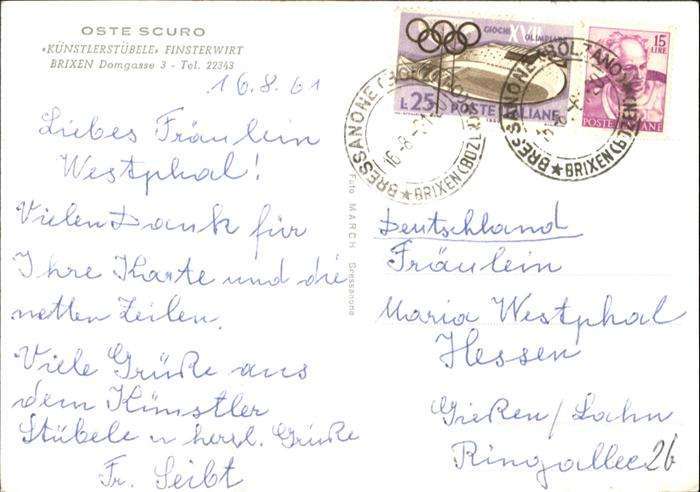 OSTE SCURO
«KÜNSTLERSTÜBELE» FINSTERWIRT
BRIXEN Domgasse 3 - Tel. 22343
16.8.61
Liebes Fräulein
Westphal!
Vielen Dank für
Ihre Karte und die
netten Zeilen.
Viele Grüße aus
dem Künstler
Stübele u herzl. Grüße
Fr. Seibt
Foto MARCH Bressanone
GIOCHI XVII OLIMPIADE
L.25 POSTE ITALIANE
15
LIRE
POSTE ITALIANE
BRESSANONE (BOLZANO)
16-8-
BRIXEN (BOZEN)
BRESSANONE (BOLZANO)
BRIXEN (BOZEN)
Deutschland
Fräulein
Maria Westphal
Hessen
Gießen/Lahn
Ringallee 26